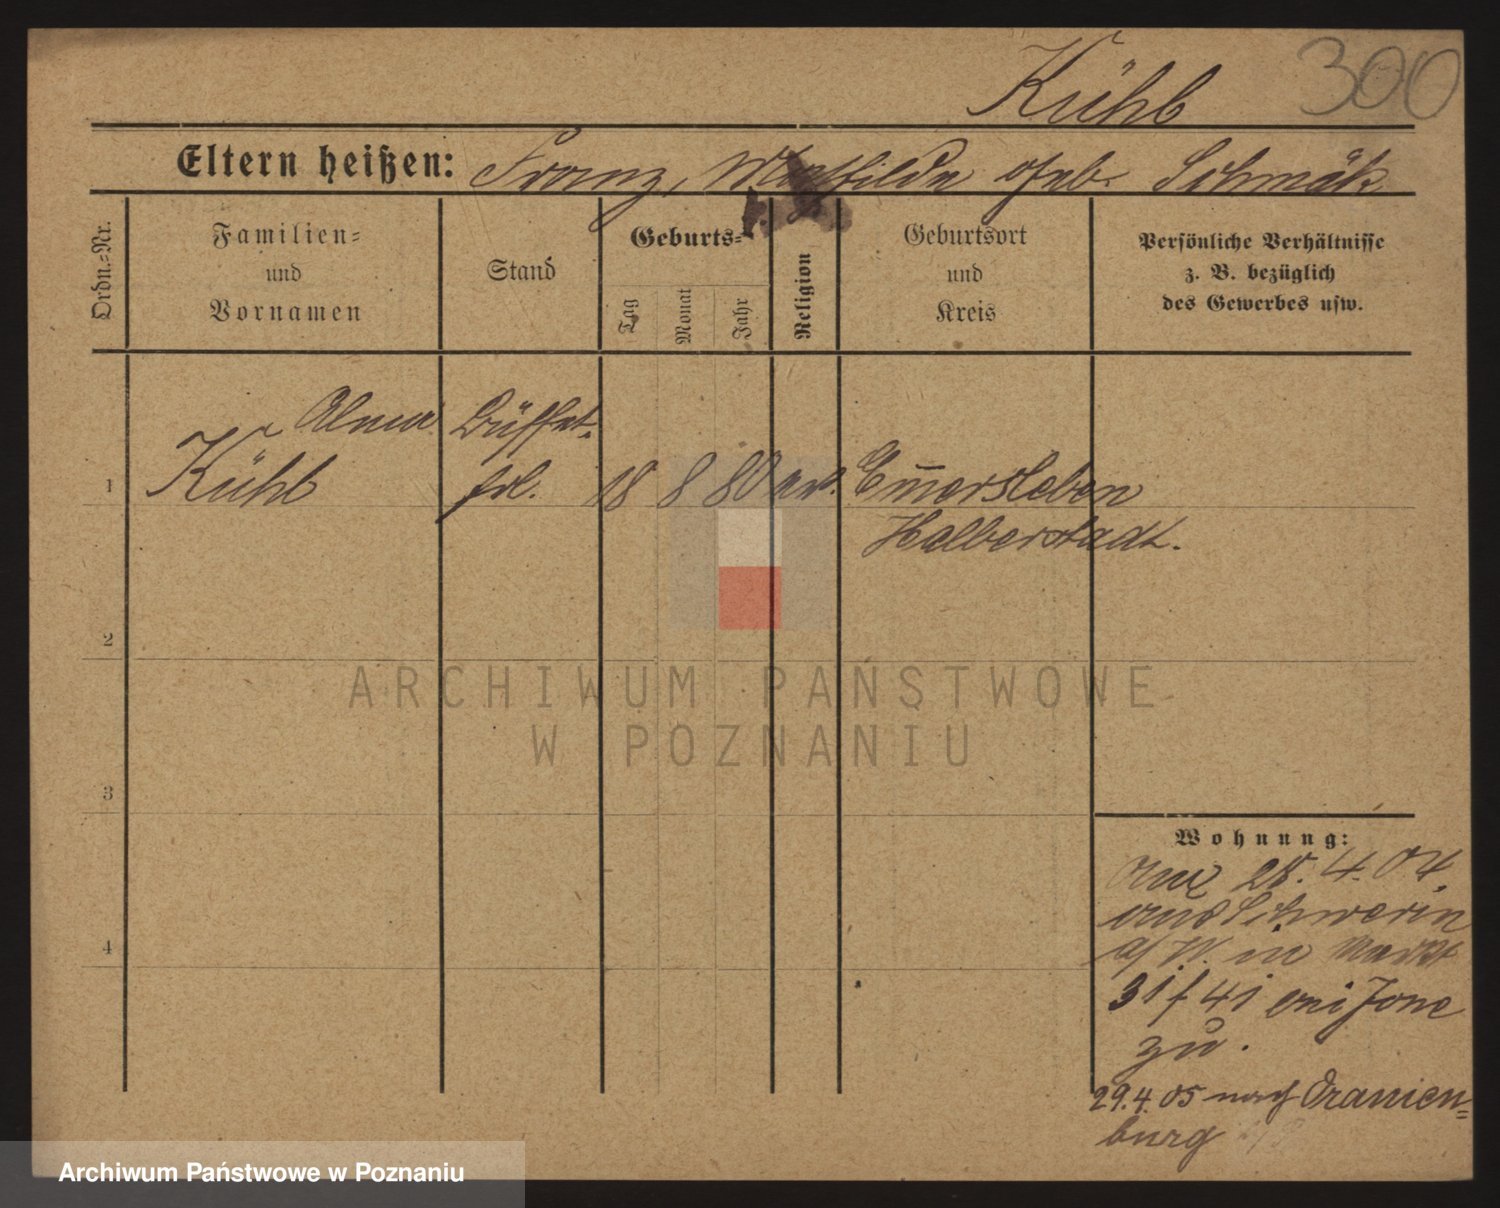 Kühb 300
Eltern heißen: Franz, Mathilde geb. Schmäk
Ordn.=Nr.
Familien=
und
Vornamen
Stand
Geburts=
Tag
Monat
Jahr
Religion
Geburtsort
und
Kreis
Persönliche Verhältnisse
z. B. bezüglich
des Gewerbes usw.
Alma Büffet.
1 Kühb frl. 18 8 80 ev. Em̅ersleben
Halberstadt.
2
3
4
Wohnung:
28. 4. 04.
aus Schwerin
a/W. in Markt
bei Jone
zu.
29.4.05 nach Oranien=
burg
ARCHIWUM PAŃSTWOWE
W POZNANIU
Archiwum Państwowe w Poznaniu